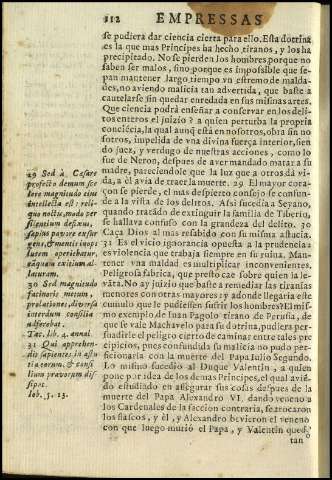 112 EMPRESSAS
se pudiera dar ciencia cierta para ello. Esta dotrina
es la que mas Principes ha hecho tiranos, y los ha
precipitado. No se pierden los hombres porque no
saben ser malos, sino porque es impossible que se-
pan mantener largo tiempo vn estremo de malda-
des, no aviendo malicia tan advertida, que baste a
cautelarse sin quedar enredada en sus mismas artes.
Que ciencia podrà enseñar a conservar en los deli-
tos entero el juizio? a quien perturba la propria
conciẽcia, la qual aunq̃ està en nosotros, obra sin no-
sotros, impelida de vna divina fuerça interior, sien
do juez, y verdugo de nuestras acciones, como lo
fue de Neron, despues de aver mandado matar a su
madre, pareciendole que la luz que a otros dà vi-
da, a èl avia de traer la muerte. 29 El mayor cora-
çon se pierde, el mas despierto consejo se confun-
de a la vista de los delitos. Assi sucedia a Seyano,
quando tratãdo de extinguir la familia de Tiberio,
se hallava confuso con la grandeza del delito. 30
Caça Dios al mas resabido con su misma astucia.
31 Es el vicio ignorancia opuesta a la prudencia:
es violencia que trabaja siempre en su ruina. Man-
tener vna maldad es multiplicar inconvenientes.
Peligrosa fabrica, que presto cae sobre quien la le-
vãta. No ay juizio que baste a remediar las tiranias
menores con otras mayores: y adonde llegaria este
cumulo que le pudiessen sufrir los hombres? El mis-
mo exemplo de Iuan Pagolo tirano de Perusia, de
que se vale Machavelo para su dotrina, pudiera per-
suadirle el peligro cierto de caminar entre tales pre
cipicios, pues confundida su malicia no pudo per-
ficionarla con la muerte del Papa Iulio Segundo.
Lo mismo sucediò al Duque Valentin, a quien
pone por idea de los demas Principes, el qual avié-
do estudiado en assegurar sus cosas despues de la
muerte del Papa Alexandro VI. dando veneno a
los Cardenales de la faccion contraria, se trocaron
los flascos, y èl, y Alexandro bevieron el veneno
con que luego muriò el Papa, y Valentin qued
tan
29 Sed à Cæsare
profecto demum sce
lere magnitudo eius
intellecta est: reli-
quo noctis, modo per
silentium defixus,
sæpius pavore exsur
gens, & mentis inops
lucem operiebatur,
tãquam exitium al-
laturam.
30 Sed magnitudo
facinoris metum,
prolationes, diversa
interdum consilia
adferebat.
Tac. lib. 4. annal.
31 Qui apprehen-
dis sapientes in astu
tia eorum, & consi
lium pravorum dis
sipat.
Iob. 5. 13.